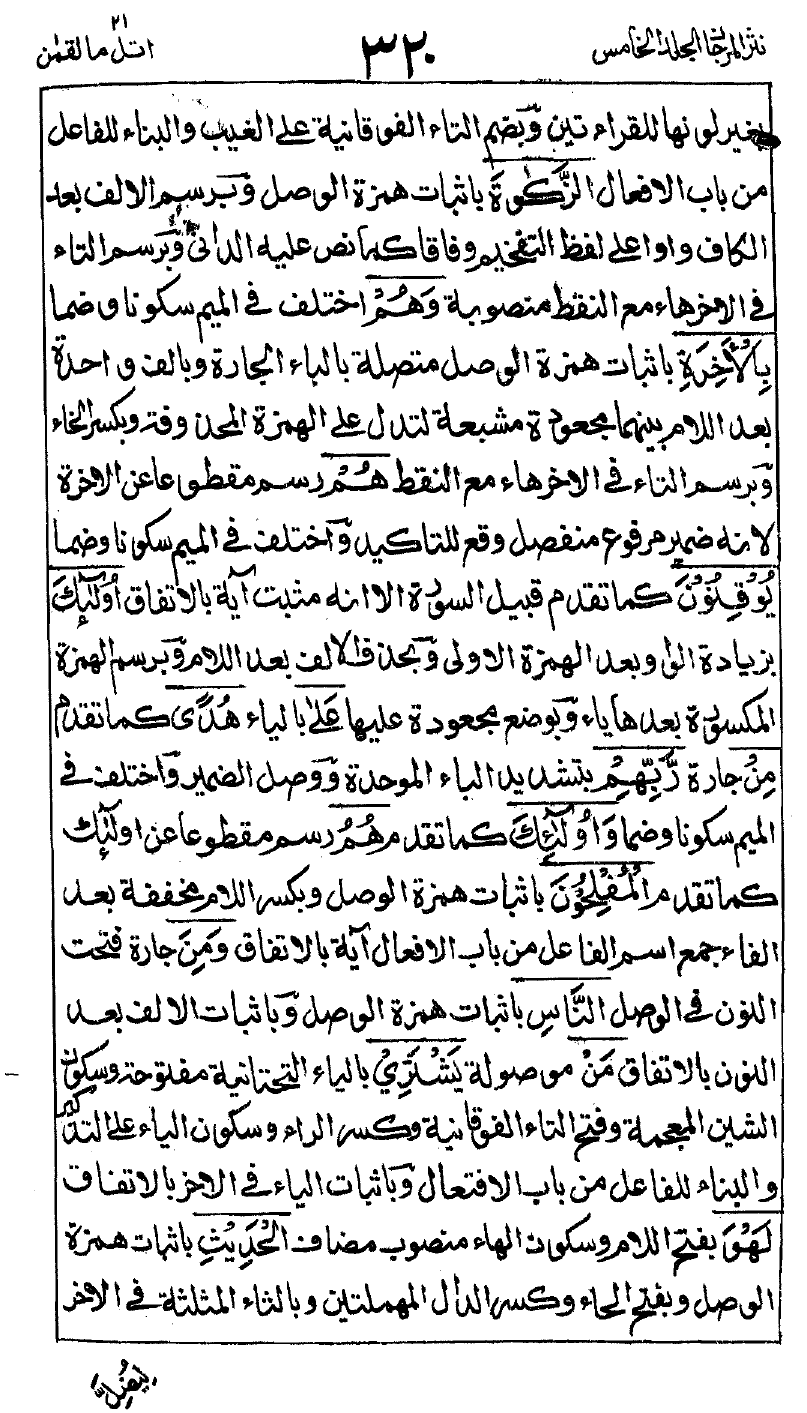 نثر المرجان المجلد الخامس
٣٢٠
٢١
اتل ما لقمٰن
بغير لونها للقراءتين وَبضم التاء الفوقانية على الغيب والبناء للفاعل
من باب الافعال الزَّكٰوةَ باثبات همزة الوصل وَبرسم الالف بعد
الكاف واوا على لفظ التفخيم وفاقا كما نص عليه الدانى وَبرسم التاء
فى الاخرهاء مع النقط منصوبة وَهُمْ اختلف فى الميم سكونا وضما
بِالْأٓخِرَةِ باثبات همزة الوصل متصلة بالباء الجارة وبالف واحدة
بعد اللام بينهما مجعودة مشبعة لتدل على الهمزة المحذوفة وبكسر الخاء
وَبرسم التاء فى الاخرهاء مع النقط هُمْ رسم مقطوعا عن الاخرة
لانه ضمير مرفوع منفصل وقع للتاكيد وَاختلف فى الميم سكونا وضما
يُوْقِنُوْنَ كما تقدم قبيل السورة الا انه مثبت آية بالاتفاق أُولٰٓئِكَ
بزيادة الواو بعد الهمزة الاولى وَبحذف الالف بعد اللام وَبرسم الهمزة
المكسورة بعدها ياء وَبوضع مجعودة عليها عَلٰى بالياء هُدًى كما تقدم
مِنْ جارة رَّبِّهِمْ بتشديد الباء الموحدة وَوصل الضمير وَاختلف فى
الميم سكونا وضما وَأُولٰٓئِكَ كما تقدم هُمُ رسم مقطوعا عن اولٰٓئك
كما تقدم الْمُفْلِحُوْنَ باثبات همزة الوصل وبكسر اللام مخففة بعد
الفاء جمع اسم الفاعل من باب الافعال آية بالاتفاق وَمِنَ جارة فتحت
النون فى الوصل النَّاسِ باثبات همزة الوصل وَباثبات الالف بعد
النون بالاتفاق مَنْ موصولة يَشْتَرِيْ بالياء التحتانية مفتوحة وسكون
الشين المعجمة وفتح التاء الفوقانية وكسر الراء وسكون الياء على التذكير
والبناء للفاعل من باب الافتعال وَباثبات الياء فى الاخر بالاتفاق
لَهْوَ بفتح اللام وسكون الهاء منصوب مضاف الْحَدِيْثِ باثبات همزة
الوصل وبفتح الحاء وكسر الدال المهملتين وبالثاء المثلثة فى الاخر
لِيُضِلَّ